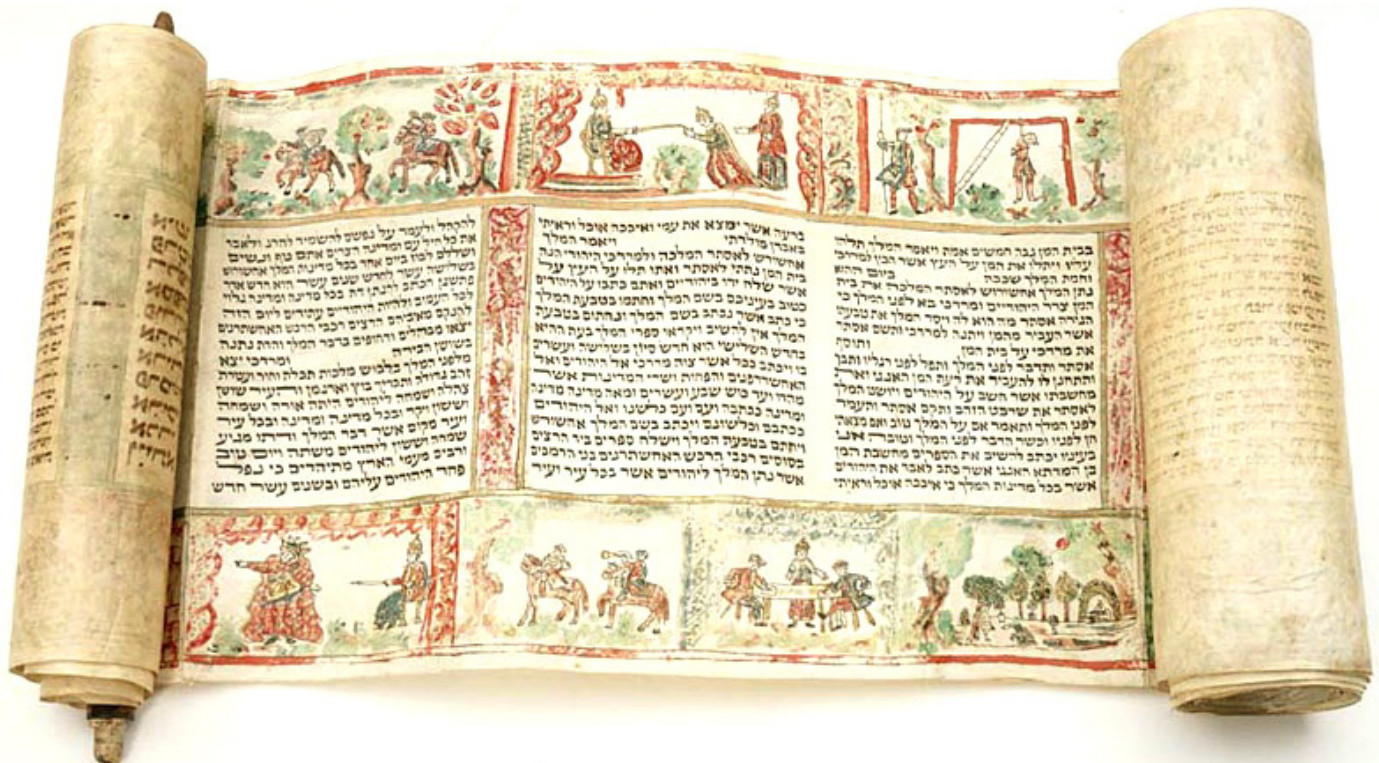 בבית המן גבה חמשים אמה ויאמר המלך תלהו
עליו ויתלו את המן על העץ אשר הכין למרדכי
וחמת המלך שככה ביום ההוא
נתן המלך אחשורוש לאסתר המלכה את בית
המן צרר היהודיים ומרדכי בא לפני המלך כי
הגידה אסתר מה הוא לה ויסר המלך את טבעתו
אשר העביר מהמן ויתנה למרדכי ותשם אסתר
את מרדכי על בית המן ותוסף
אסתר ותדבר לפני המלך ותפל לפני רגליו ותבך
ותתחנן לו להעביר את רעת המן האגגי ואת
מחשבתו אשר חשב על היהודים ויושט המלך
לאסתר את שרבט הזהב ותקם אסתר ותעמד
לפני המלך ותאמר אם על המלך טוב ואם מצאתי
חן לפניו וכשר הדבר לפני המלך וטובה אני
בעיניו יכתב להשיב את הספרים מחשבת המן
בן המדתא האגגי אשר כתב לאבד את היהודים
אשר בכל מדינות המלך כי איככה אוכל וראיתי
ברעה אשר ימצא את עמי ואיככה אוכל וראיתי
באבדן מולדתי ויאמר המלך
אחשורש לאסתר המלכה ולמרדכי היהודי הנה
בית המן נתתי לאסתר ואתו תלו על העץ על
אשר שלח ידו ביהודיים ואתם כתבו על היהודים
כטוב בעיניכם בשם המלך וחתמו בטבעת המלך
כי כתב אשר נכתב בשם המלך ונחתום בטבעת
המלך אין להשיב ויקראו ספרי המלך בעת ההיא
בחדש השלישי הוא חדש סיון בשלושה ועשרים
בו ויכתב ככל אשר צוה מרדכי אל היהודים ואל
האחשדרפנים והפחות ושרי המדינות אשר
מהדו ועד כוש שבע ועשרים ומאה מדינה מדינה
ומדינה ככתבה ועם ועם כלשנו ואל היהודים
ככתבם וכלשונם ויכתב בשם המלך אחשורש
ויחתם בטבעת המלך וישלח ספרים ביד הרצים
בסוסים רכבי הרכש האחשתרנים בני הרמכים
אשר נתן המלך ליהודים אשר בכל עיר ועיר
להקהל ולעמד על נפשם להשמיד להרג ולאבד
את כל חיל עם ומדינה הצרים אתם טף ונשים
ושללם לבוז ביום אחד בכל מדינות המלך אחשורוש
בשלושה עשר לחדש שנים עשר הוא חדש אדר
פתשגן הכתב להנתן דת בכל מדינה ומדינה גלוי
לכל העמים ולהיות היהודיים עתידים ליום הזה
להנקם מאיביהם הרצים רכבי הרכש האחשתרנים
יצאו מבהלים ודחופים בדבר המלך והדת נתנה
בשושן הבירה ומרדכי יצא
מלפני המלך בלבוש מלכות תכלת וחור ועטרת
זהב גדולה ותכריך בוץ וארגמן והעיר שושן
צהלה ושמחה ליהודים היתה אורה ושמחה
וששן ויקר ובכל מדינה ומדינה ובכל עיר
ועיר מקום אשר דבר המלך ודתו מגיע
שמחה וששון ליהודים משתה ויום טוב
ורבים מעמי הארץ מתיהדים כי נפל
פחד היהודים עליהם ובשנים עשר חדש
איש